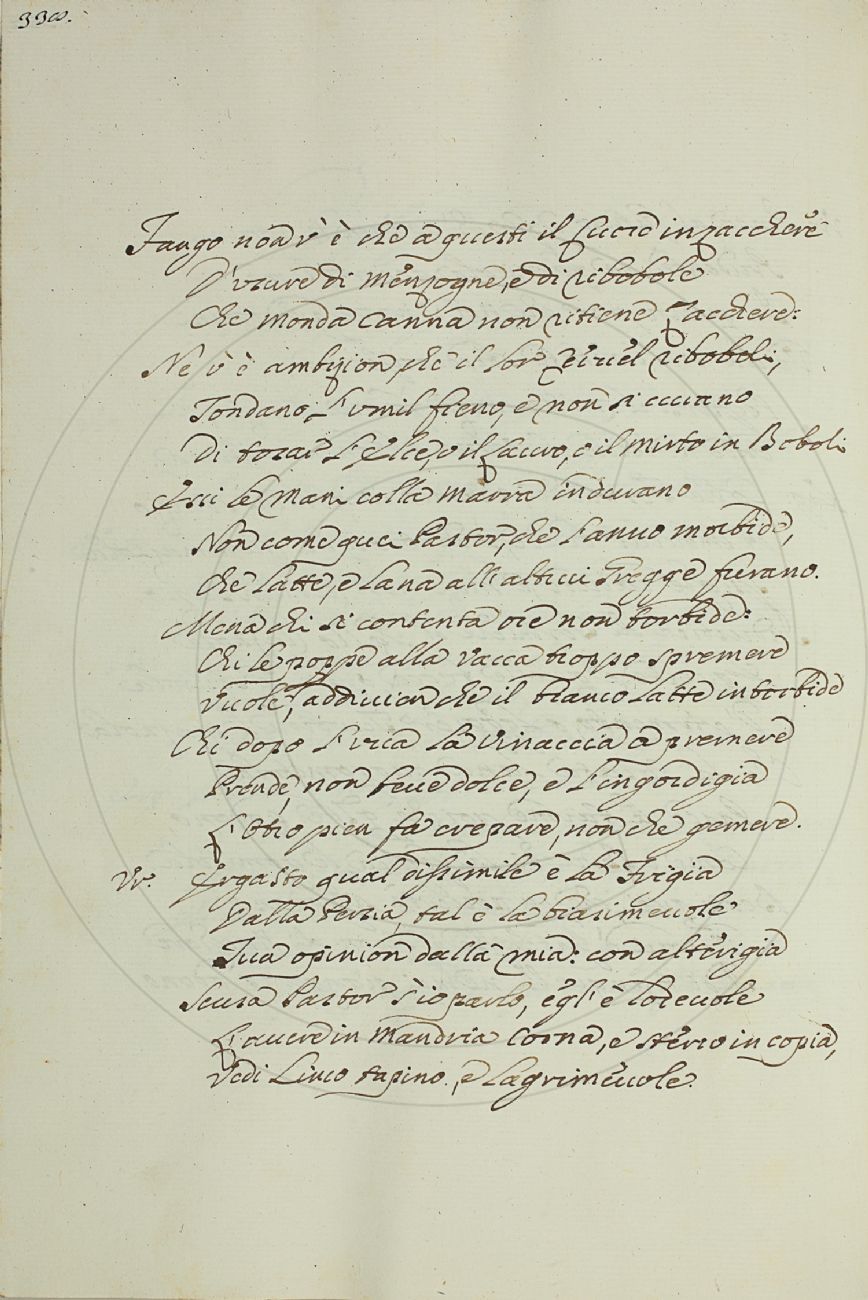 338.
Fango non v' è che a questi il cuore inzacchere
D' usure di menzogne, e di ribobole
Che monda canna non ritiene zacchere:
Nè v' è ambizion che il lor ribobeli,
Tondano l' umil fieno, e non si curano
Di tosar l' Elce, o il Lauro, o il Mirto in Boboli
Essi le mani colla marra indurano
Non come quei Pastor, che l' anno morbide,
Che latte, e lana all' altrui Gregge furano.
Mena chi si contenta ore non torbide:
Chi le poppe alla vacca troppo spremere
Vuole, addivien che il bianco latte intorbide
Chi dopo l' uva la vinaccia a premere
Prende, non beve dolce, e l' ingordigia
L' Otro pien fa crepare, non che gemere.
Ur. Ergasto qual dissimile è la Frigia
Dalla Persia, tal è la biasimevole
Tua opinion dalla mia: con alterigia
Scusa Pastor s' io parlo, egl' è lodevole
L' avere in Mandria Corna, e sterco in copia,
Vedi Linco tapino, e lagrimevole.